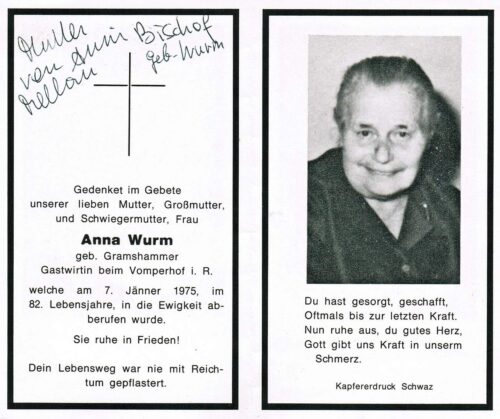 Mutter
von Anni Bischof
geb. Wurm
Mellau
Gedenket im Gebete
unserer lieben Mutter, Großmutter,
und Schwiegermutter, Frau
Anna Wurm
geb. Gramshammer
Gastwirtin beim Vomperhof i. R.
welche am 7. Jänner 1975, im
82. Lebensjahre, in die Ewigkeit ab-
berufen wurde.
Sie ruhe in Frieden!
Dein Lebensweg war nie mit Reich-
tum gepflastert.
Du hast gesorgt, geschafft,
Oftmals bis zur letzten Kraft.
Nun ruhe aus, du gutes Herz,
Gott gibt uns Kraft in unserm
Schmerz.
Kapfererdruck Schwaz